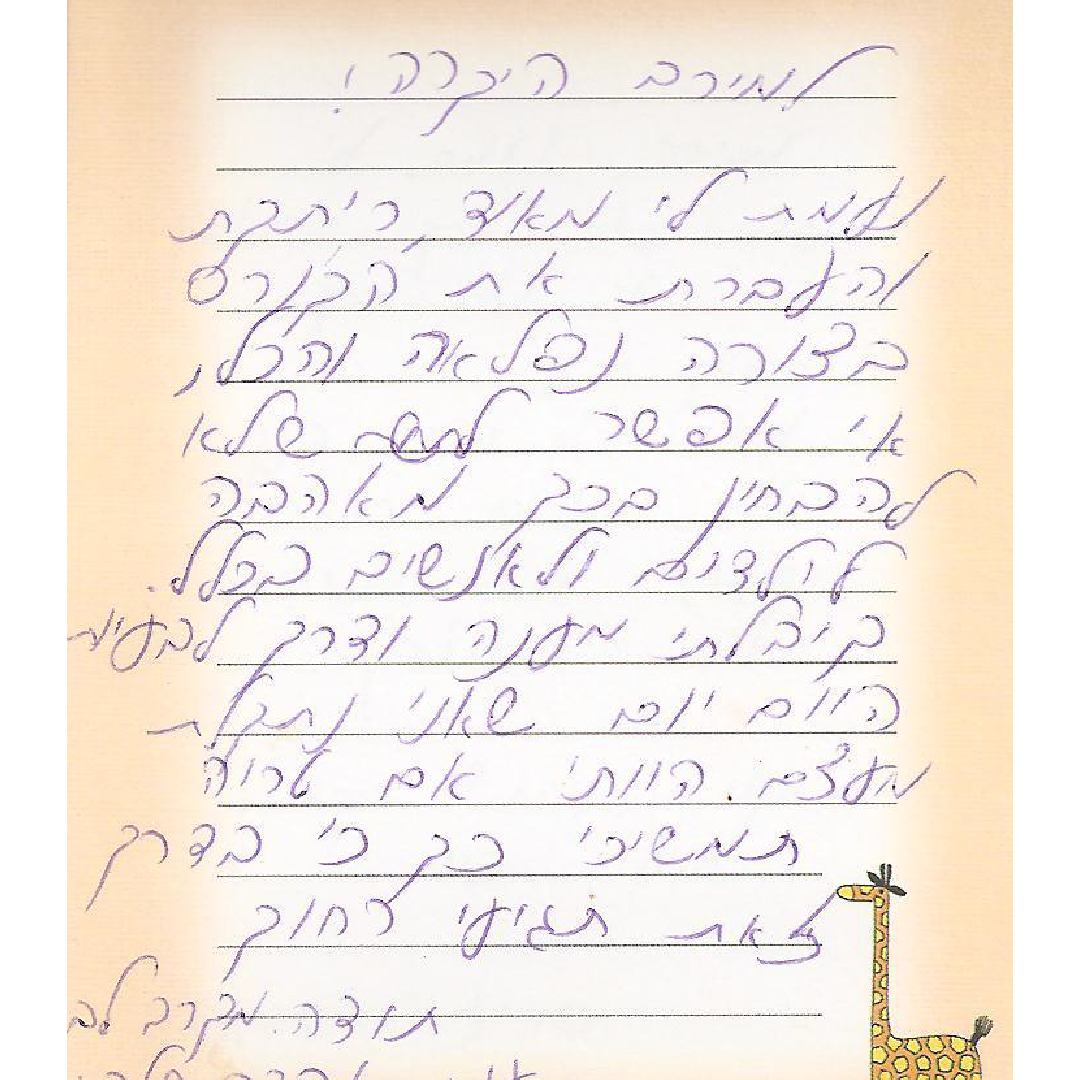 למירב היקרה!
נעמת לי מאוד, ריתקת
והעברת את הקורס
בצורה נפלאה והכל,
אי אפשר שלא
להבחין בכך מאהבה
לילדים ולאנשים בכלל.
קיבלתי מענה ודרך לבעיות
היום יום שאני נתקלת
מעצם היותי אם טריה
תמשיכי כך כי בדרך
זאת תגיעי רחוק
תודה מקרב לב